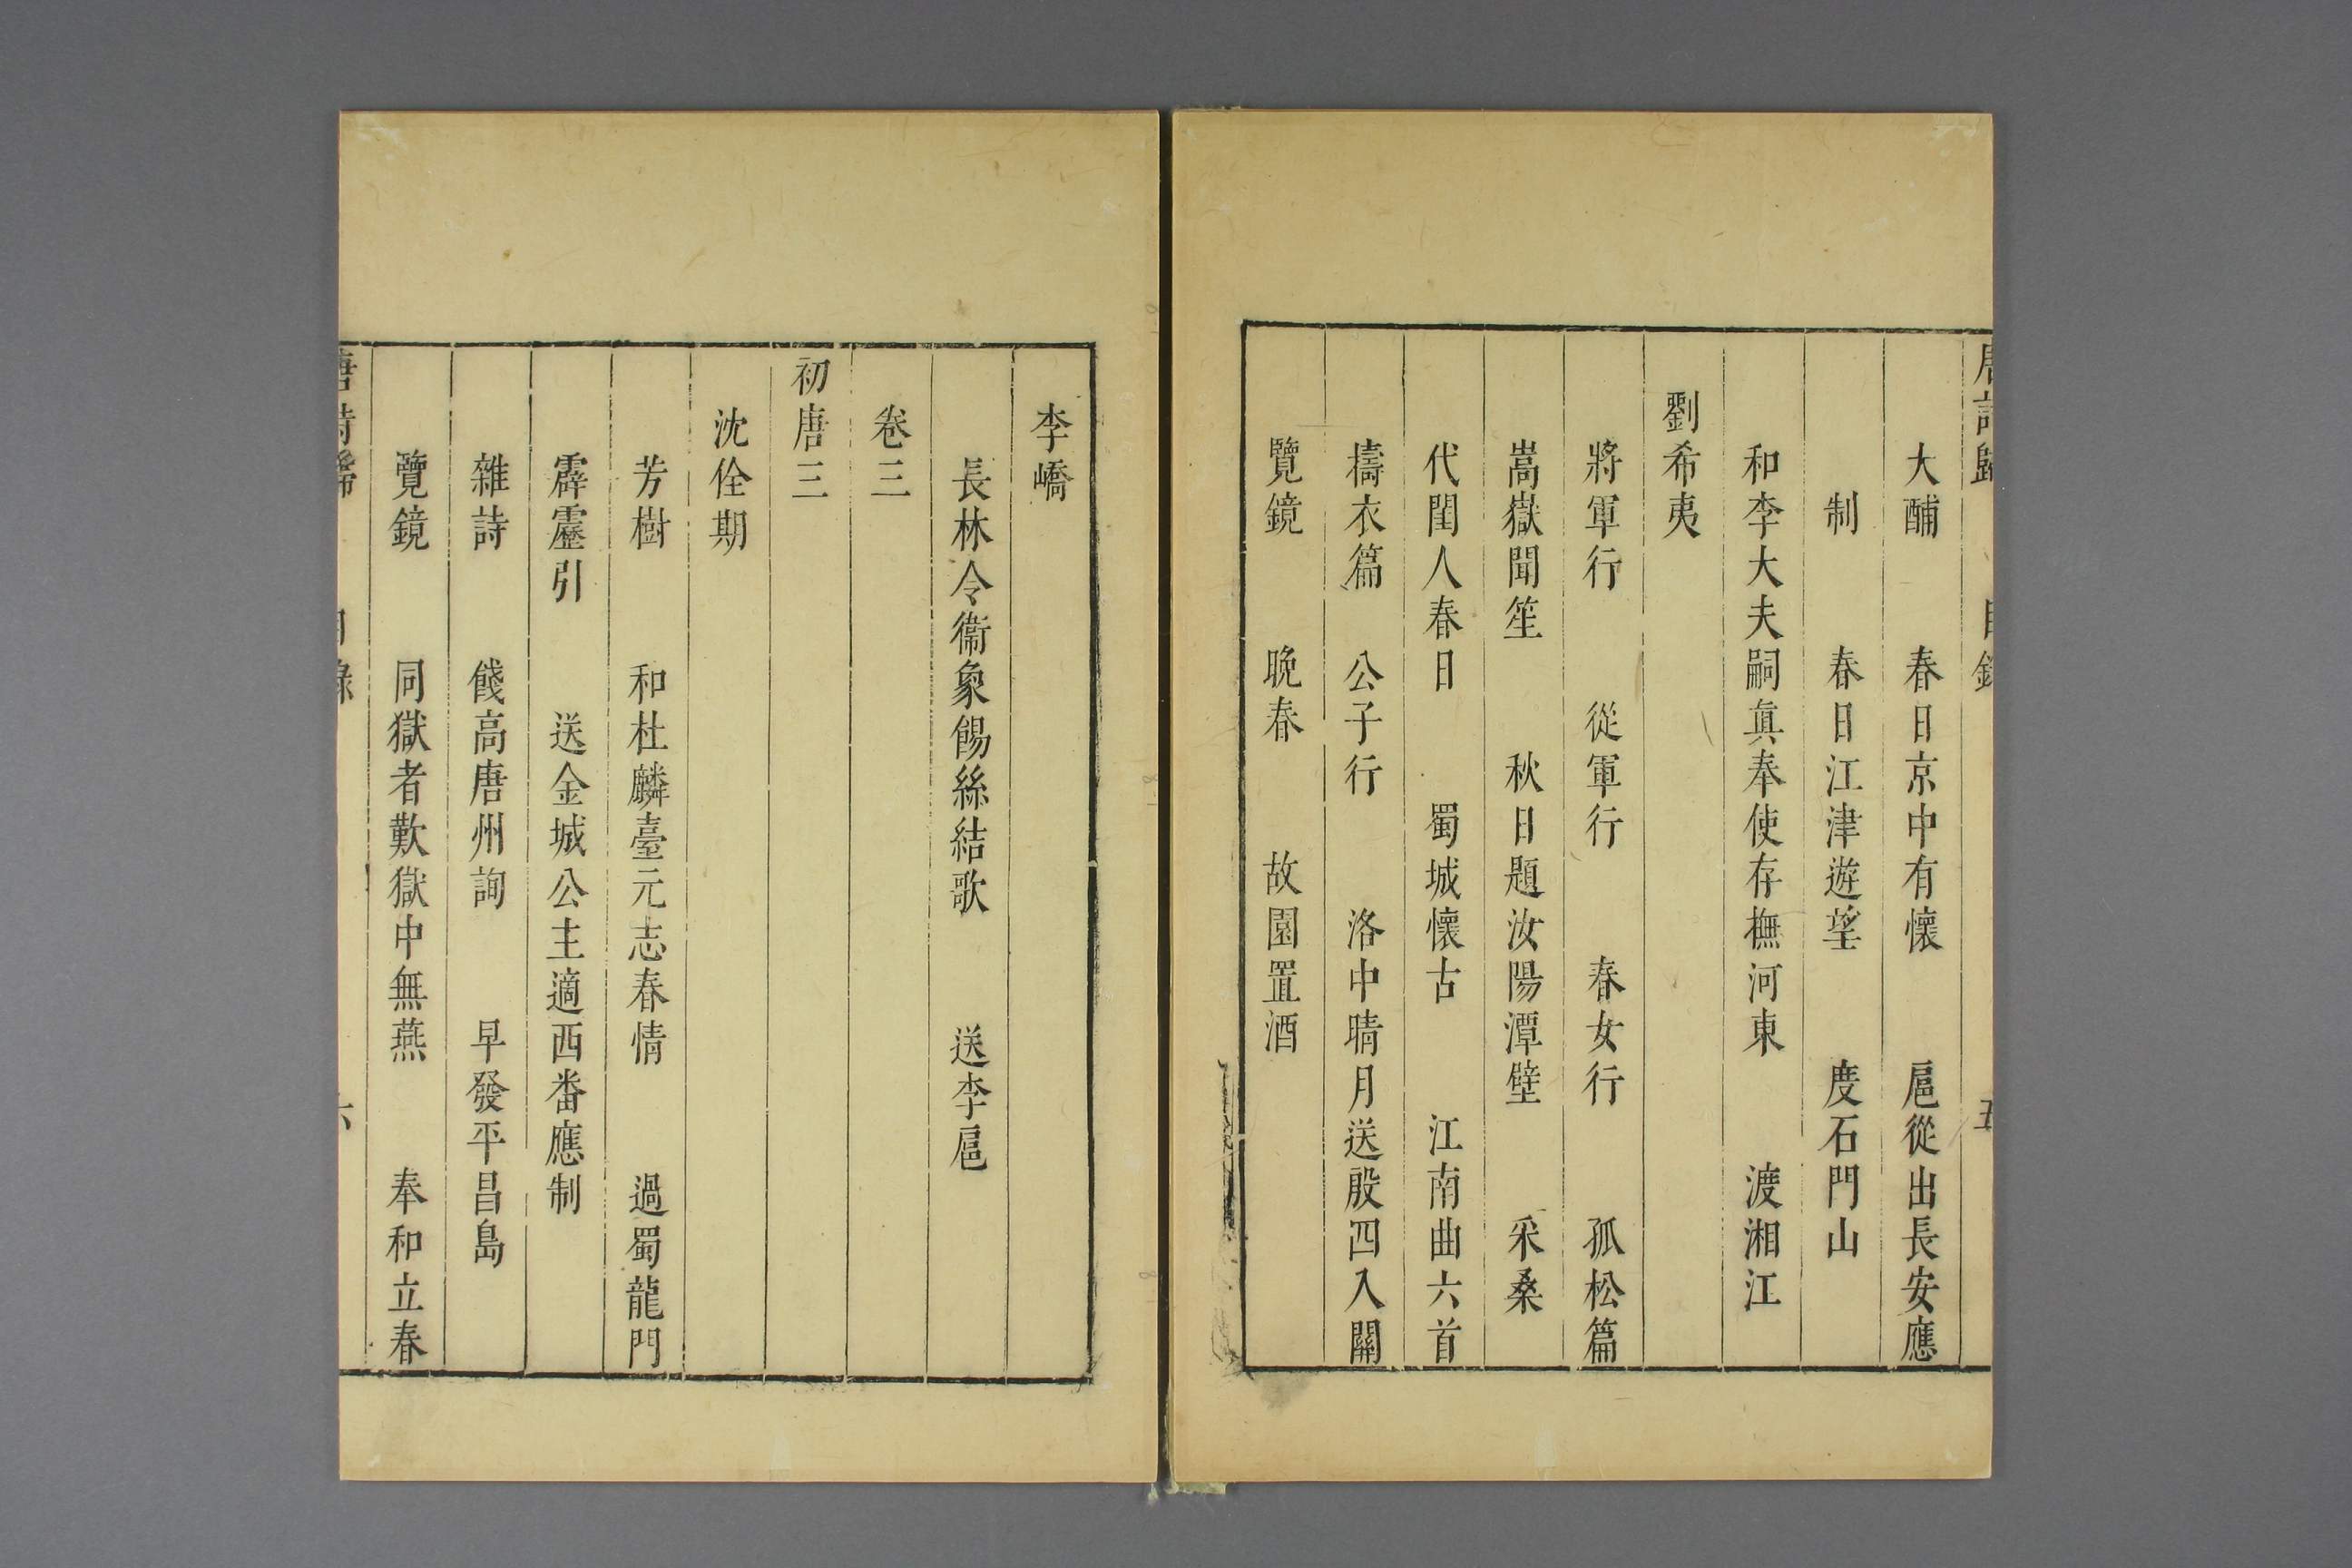 唐詩歸 目錄 五
大酺 春日京中有懷 扈從出長安應
制 春日江津遊望 度石門山
和李大夫嗣真奉使存撫河東 渡湘江
劉希夷
將軍行 從軍行 春女行 孤松篇
嵩嶽聞笙 秋日題汝陽潭壁 采桑
代閨人春日 蜀城懷古 江南曲六首
擣衣篇 公子行 洛中晴月送殷四入關
覽鏡 晚春 故園置酒
李嶠
長林令衞象餳絲結歌 送李扈
卷三
初唐三
沈佺期
芳樹 和杜麟臺元志春情 過蜀龍門
霹靂引 送金城公主適西番應制
雜詩 餞高唐州詢 早發平昌島
覽鏡 同獄者歎獄中無燕 奉和立春
唐詩歸 目錄 六